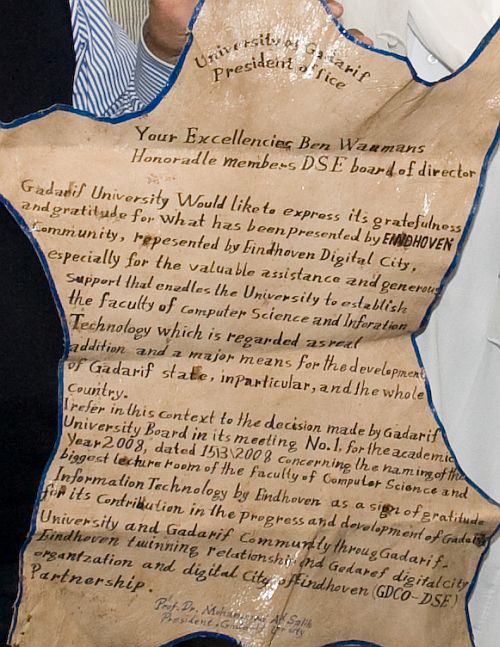 University of Gadarif
President office
Your Excellencies Ben Waumans
Honoradle members DSE board of director
Gadarif University Would like to express its gratefulness
and gratitude for what has been presented by EINDHOVEN
Community, repesented by Eindhoven Digital City,
especially for the valuable assistance and generous
support that enadles the University to establish
the faculty of computer Science and Inforation
Technology which is regarded as real
addition and a major means for the development
of Gadarif state, inparticular, and the whole
country.
I refer in this context to the decision made by Gadarif
University Board in its meeting No.1, for the academic
Year 2008, dated 15\3\2008 concerning the naming of the
biggest lecture room of the faculty of Computer Science and
Information Technology by Eindhoven as a sign of gratitude
for its Contribution in the Progress and development of Gadarif
University and Gadarif Community throug Gadarif-
Eindhoven twinning relationship and Gedaref digital City
organtzation and digital City of Eindhoven (GDCO-DSE)
Partnership.
Prof. Dr. Mohammed Salih
President,